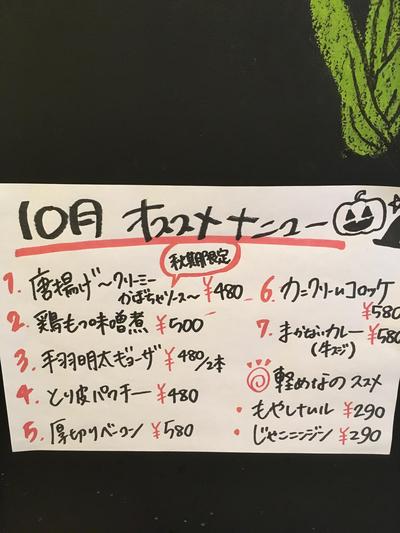 10月 オススメメニュー
秋期限定
1. 唐揚げ〜クリーミー
かぼちゃソース〜 ¥480
2. 鶏もつ味噌煮 ¥500
3. 手羽明太ギョーザ ¥480/2本
4. とり皮パクチー ¥480
5. 厚切りベーコン ¥580
6. カニクリームコロッケ
¥580
7. まかないカレー ¥580
(牛スジ)
軽めなのススメ
・もやしナムル ¥290
・じゃこニンジン ¥290